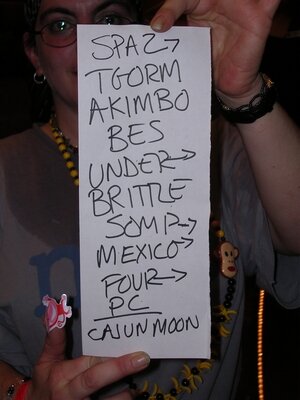 SPAZ→
TGORM
AKIMBO
BES
UNDER→
BRITTLE
SOMP→
MEXICO→
FOUR→
PC
CAJUN MOON